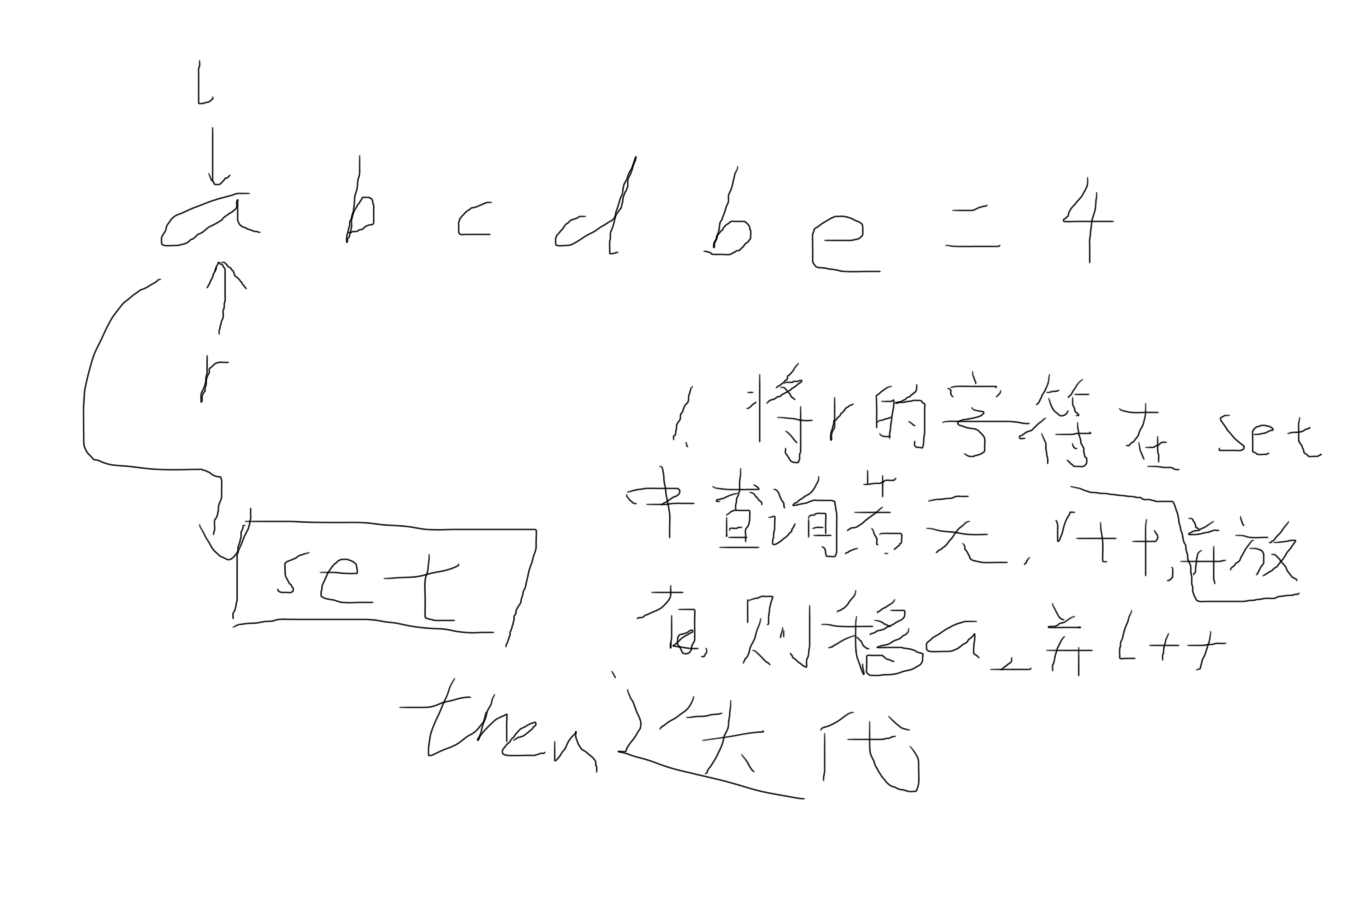 l
a b c d b e = 4
r
1. 将r的字符在 set
中查询若无, r++, 并放
set
有, 则移a, 并 l++
then 迭代